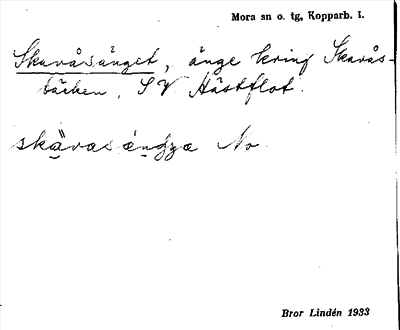 Mora sn o. tg, Kopparb. l.
Skavåsänget, änge kring Skavås-
bäcken, SV Hästflot.
skävas No
Bror Lindén 1933